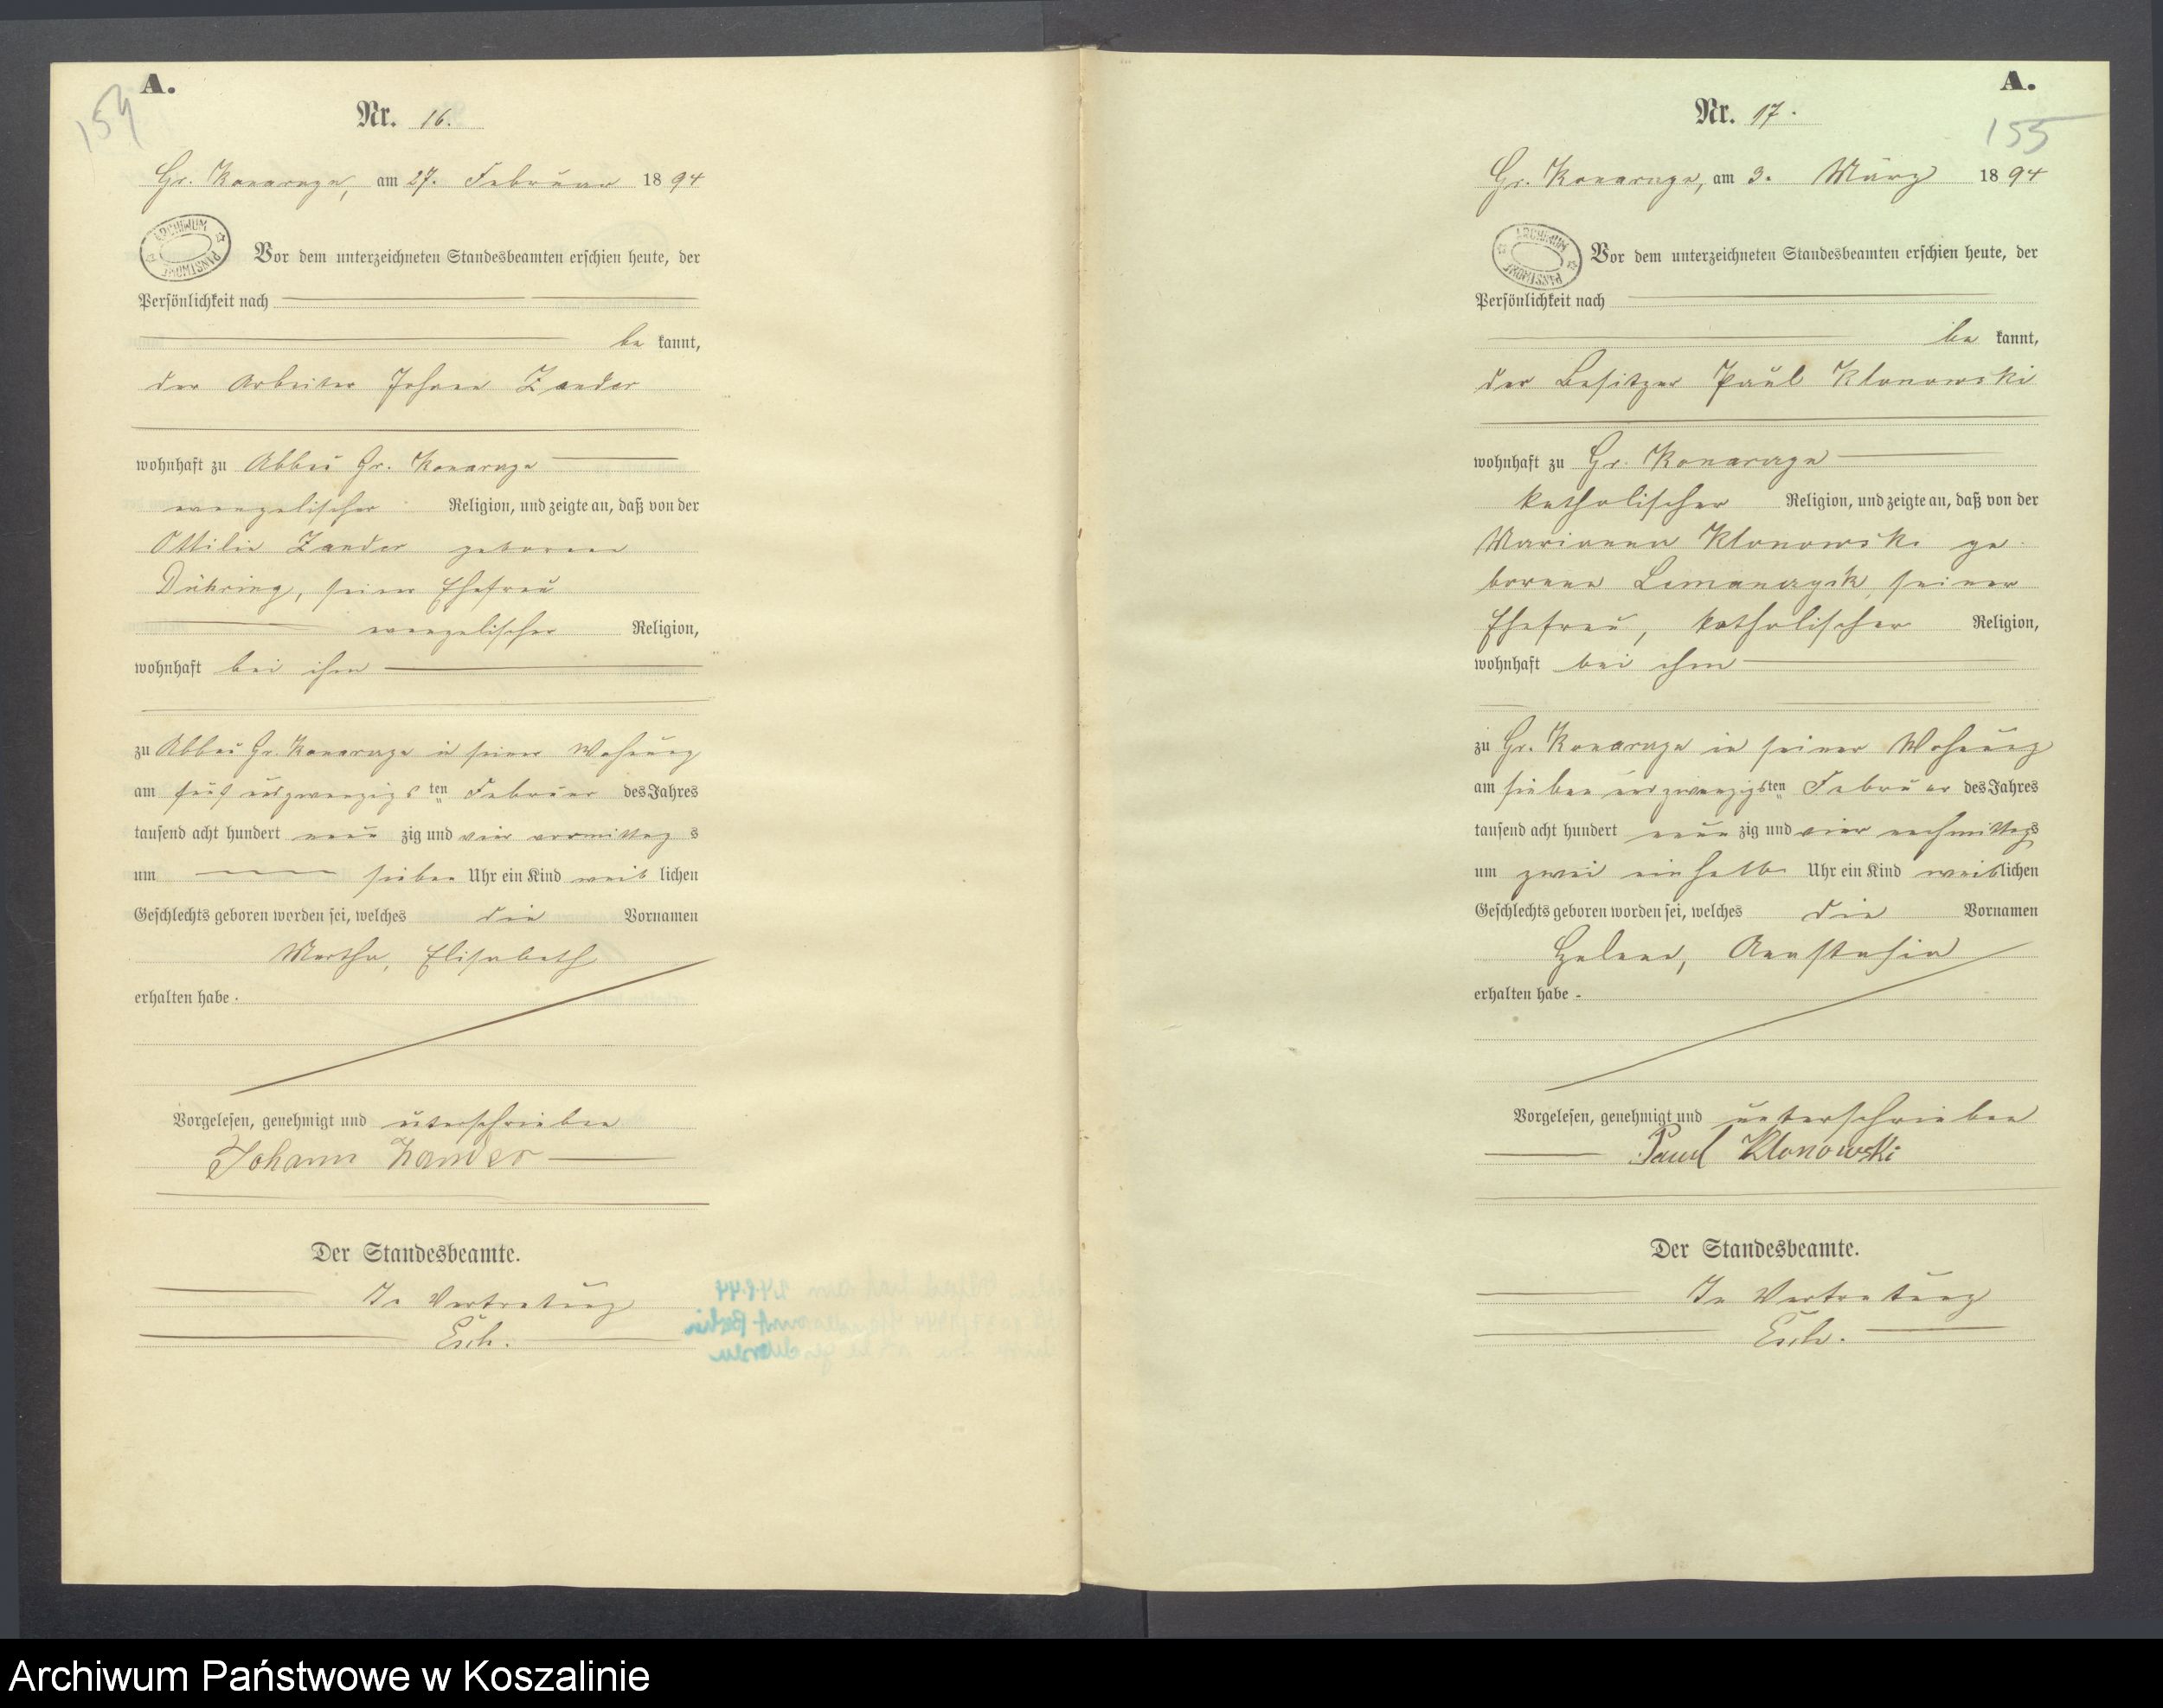 A.
154
Nr. 16.
Gr. Konarczyn, am 27. Februar 1894
ARCHIWUM PAŃSTWOWE
Vor dem unterzeichneten Standesbeamten erschien heute, der
Persönlichkeit nach
be kannt,
der Arbeiter Johann Zander
wohnhaft zu Abbau Gr. Konarczyn
evangelischer Religion, und zeigte an, daß von der
Ottilie Zander geborene
Dühring, seiner Ehefrau
evangelischer Religion,
wohnhaft bei ihm
zu Abbau Gr. Konarczyn in seiner Wohnung
am fünf und zwanzigs ten Februar des Jahres
tausend acht hundert neun zig und vier vormittag s
um sieben Uhr ein Kind weib lichen
Geschlechts geboren worden sei, welches die Vornamen
Martha, Elisabeth
erhalten habe.
Vorgelesen, genehmigt und unterschrieben
Johann Zander
Der Standesbeamte.
In Vertretung
A.
155
Nr. 17.
Gr. Konarczyn, am 3. März 1894
ARCHIWUM PAŃSTWOWE
Vor dem unterzeichneten Standesbeamten erschien heute, der
Persönlichkeit nach
be kannt,
der Besitzer Paul Klonowski
wohnhaft zu Gr. Konarczyn
katholischer Religion, und zeigte an, daß von der
Marianna Klonowski ge-
borene Lemanczyk, seiner
Ehefrau, katholischer Religion,
wohnhaft bei ihm
zu Gr. Konarczyn in seiner Wohnung
am sieben und zwanzigsten Februar des Jahres
tausend acht hundert neun zig und vier nachmittags
um zwei ein halb Uhr ein Kind weiblichen
Geschlechts geboren worden sei, welches die Vornamen
Helene, Anastasia
erhalten habe.
Vorgelesen, genehmigt und unterschrieben
Paul Klonowski
Der Standesbeamte.
In Vertretung
Archiwum Państwowe w Koszalinie